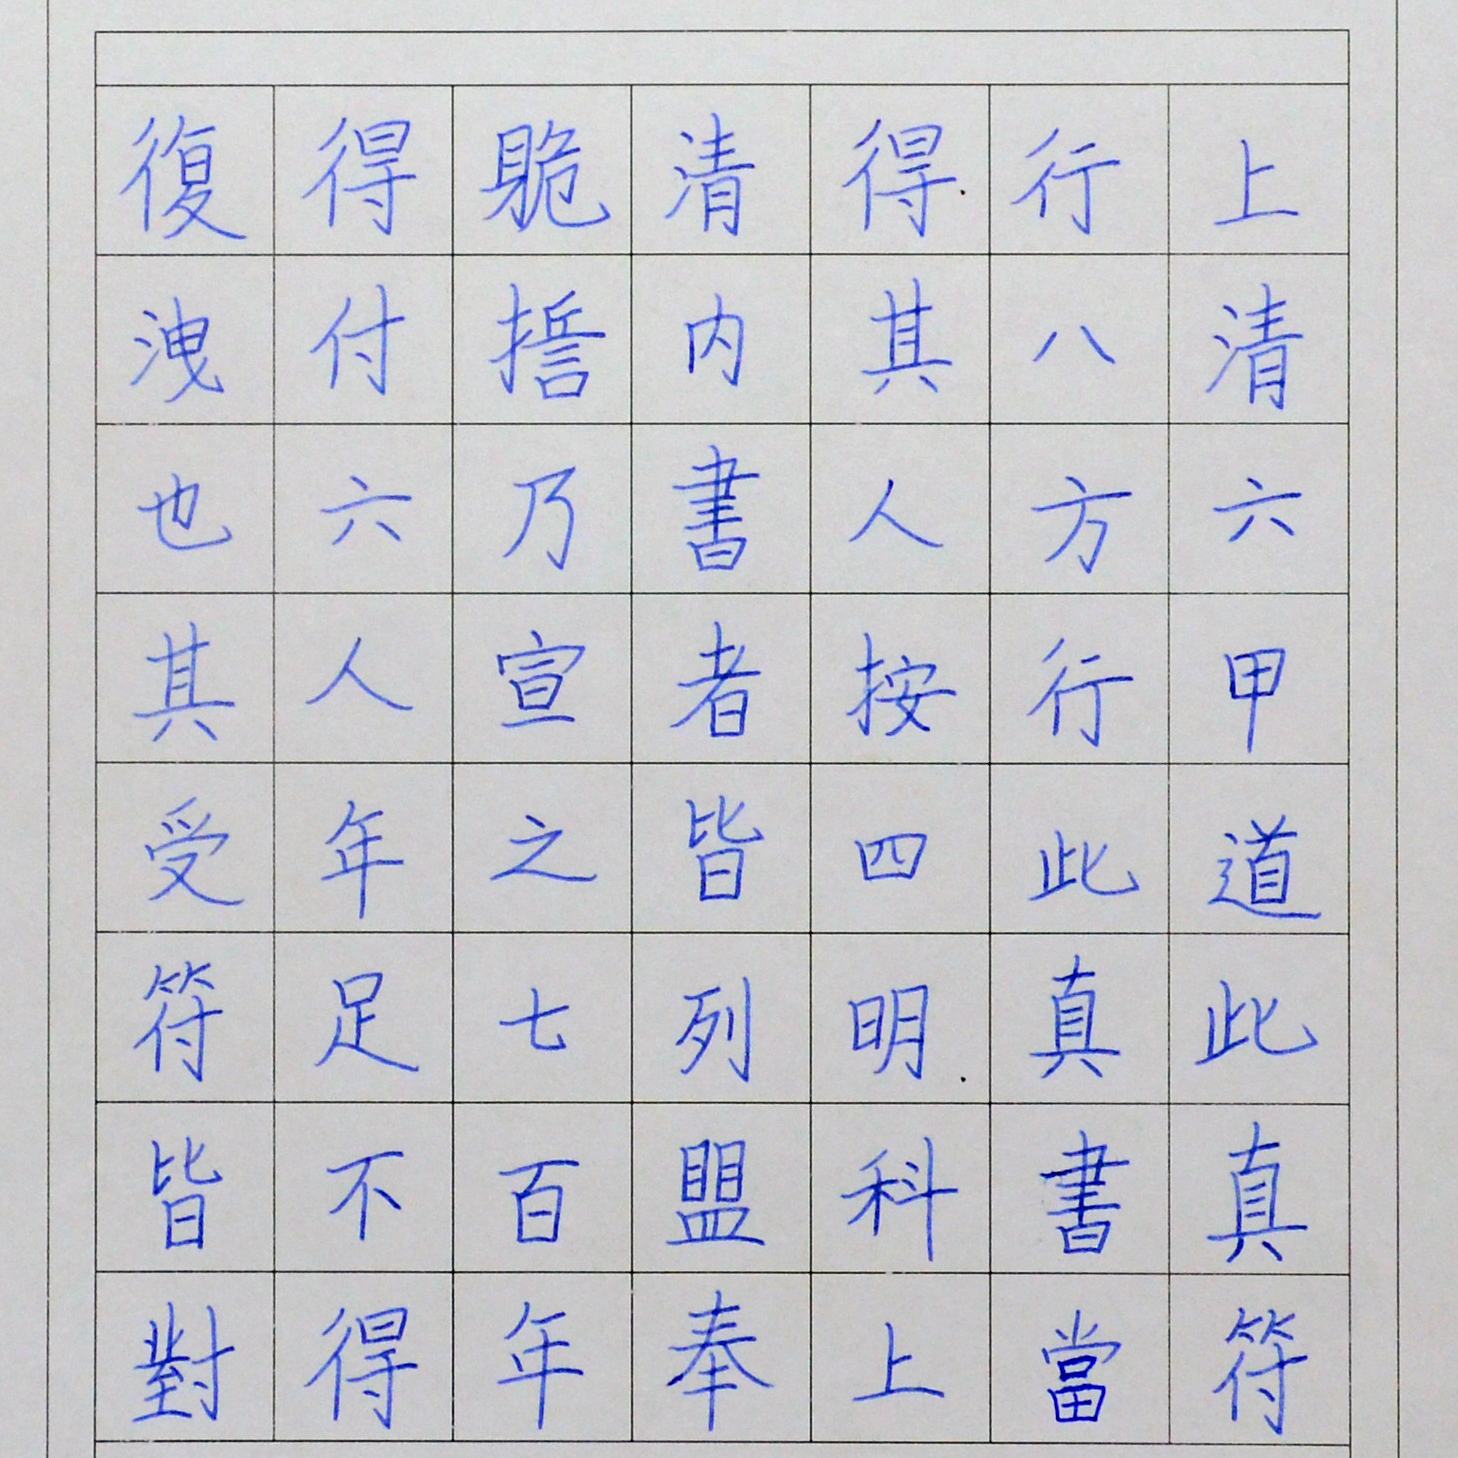 上清六甲道此真符
行八方行此真書當
得其人按四明科上
清内書者皆列盟奉
賥誓乃宣之七百年
得付六人年足不得
復洩也其受符皆對